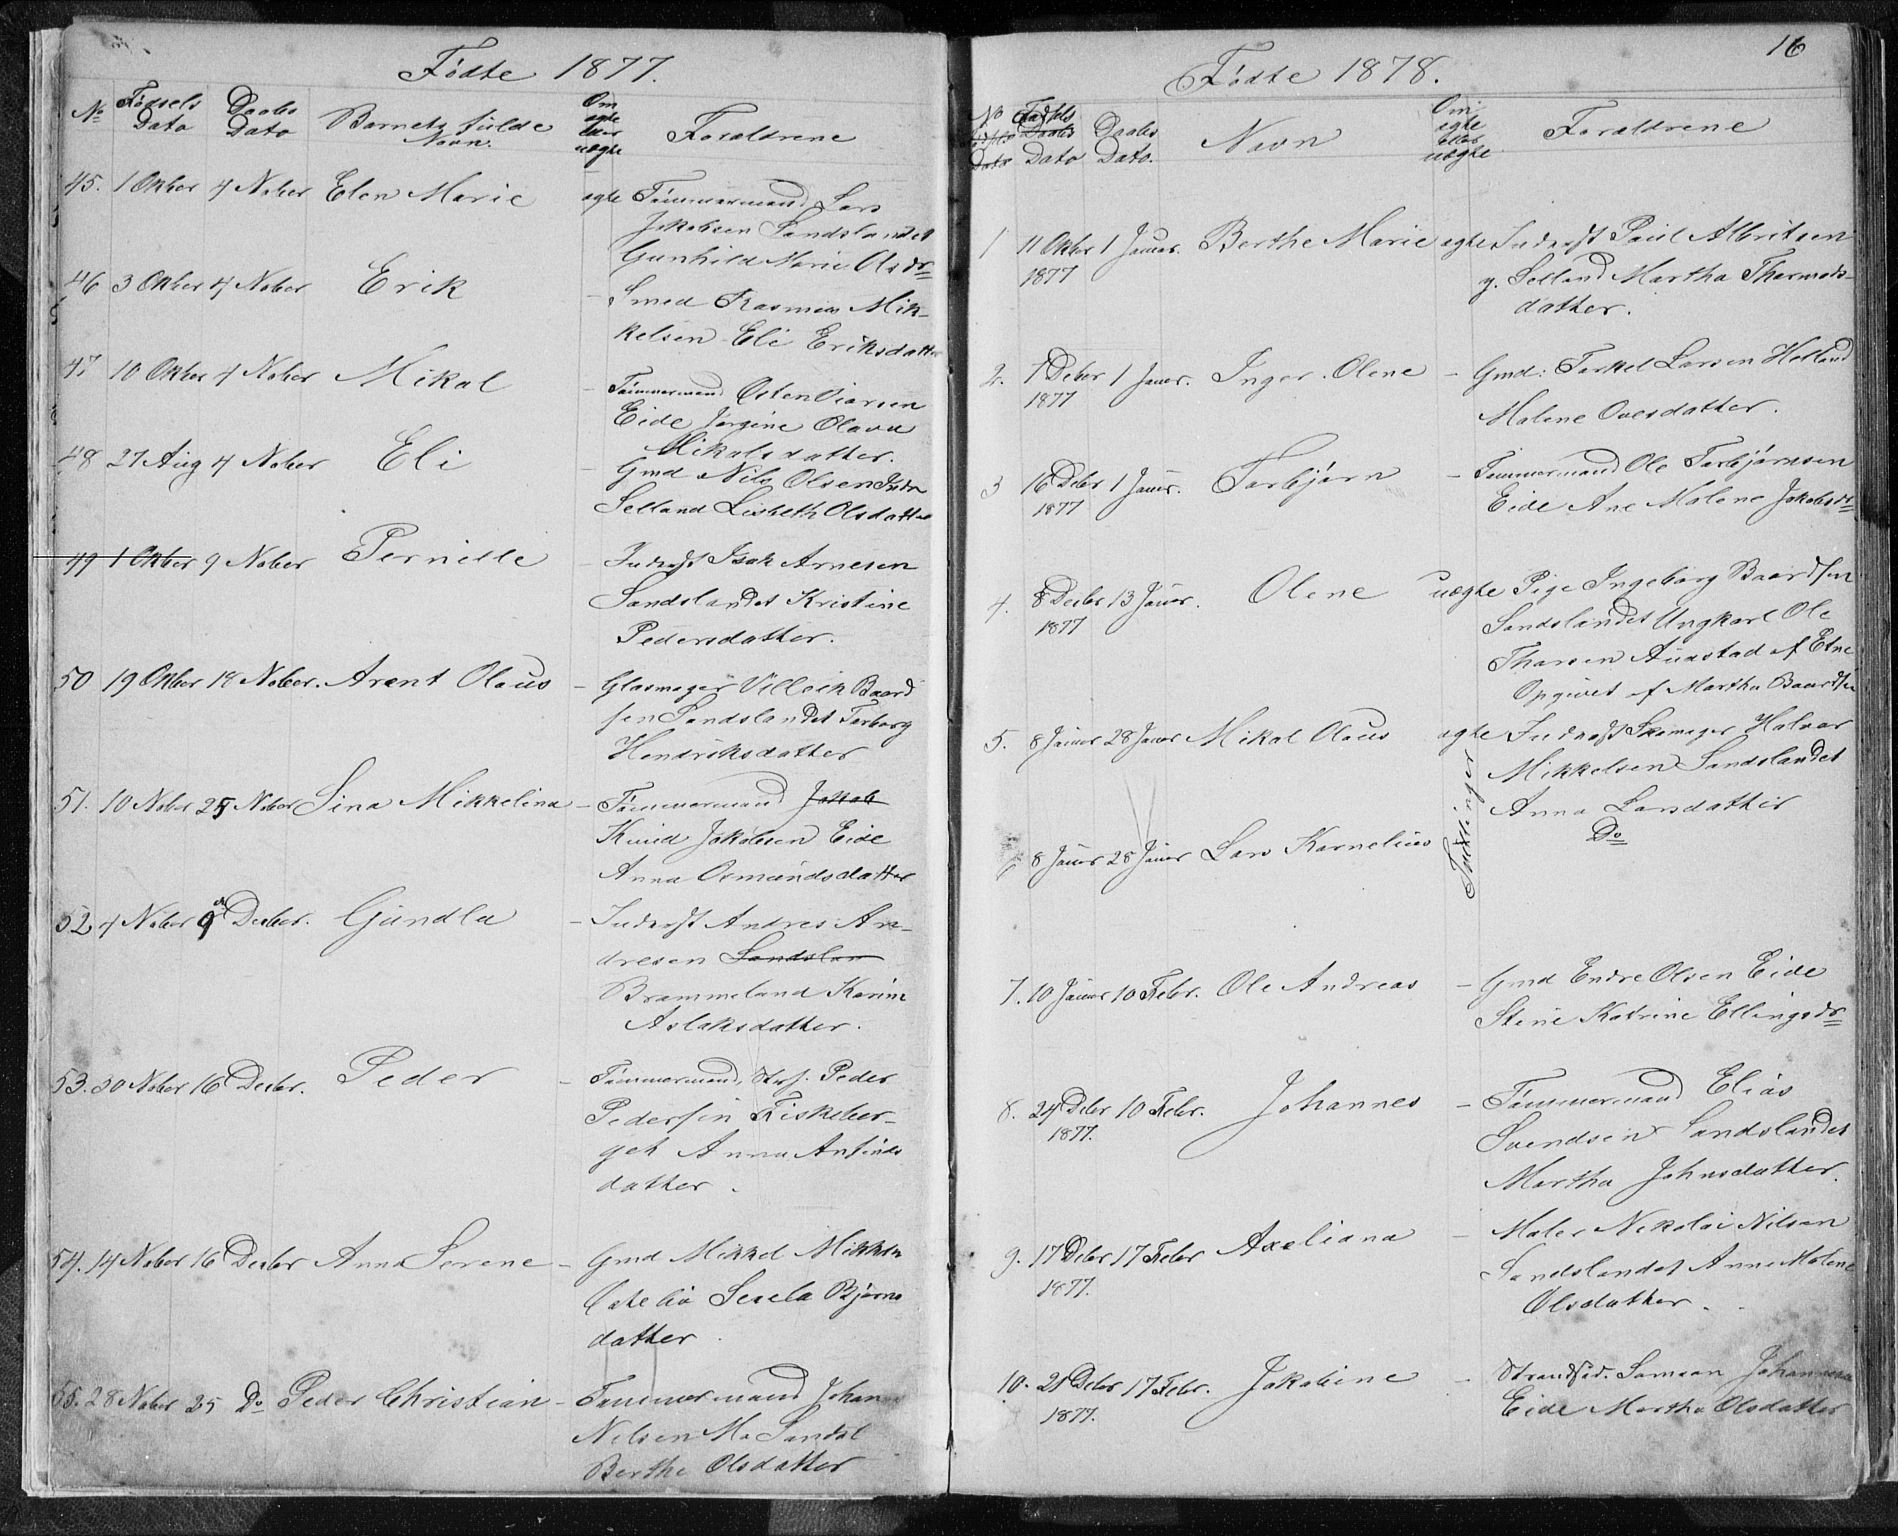 Fødte 1877.
No Fødsels Dato Daabs Dato Barnets fulde Navn. Om ægte eller uægte Forældrene
45. 1 Oktber 4 Nober Elen Marie ægte Tømmermand Lars
Jakobsen Sandslandet
Gunhild Marie Olsdr
46 3 Oktber 4 Nober Erik – Smed Rasmus Mik-
kelsen Eli Eriksdatter
47 10 Oktber 4 Nober Mikal – Tømmermand Østen
Eide Jørgine Olava
Mikalsdatter.
48 27 Aug 4 Nober Eli – Gmd Nils Olsen Indr
Selland Lisbeth Olsdatter
49 1 Oktber 9 Nober Pernille – Inderst Isak Arnesen
Sandslandet Kristine
Pedersdatter.
50 19 Oktber 18 Nober. Arent Olaus – Glasmager Villeik Baard
sen Sandslandet Torborg
Hendriksdatter
51. 10 Nober 25 Nober Sina Mikkelina – Tømmermand Jakob
Knud Jakobsen Eide
Anna Osmundsdatter
52 4 Nober 9 Desber. Gundla – Inderst Andres An-
dresen Sandslan
Brammeland Karine
Aslaksdatter.
53. 30 Nober 16 Desbr. Peder – Tømmermand, Peder
Pedersen Fiskeber-
get Anna Anfinds
datter.
54. 14 Nober 16 Desbr Anna Serene – Gmd Mikkel Mikkelsen
Sesela Bjørns
datter.
55. 28 Nober 25 Do Peder Christian – Tømmermand Johan
Nilsen Sandsl
Berthe Olsdatter
16
Fødte 1878.
No Fødsels Daabs Dato Daabs Dato. Navn Om ægte eller uægte Forældrene
1 11 Oktber 1 Januar. Berthe Marie ægte Inderst Paul Albritsen
y. Selland Martha Thormods-
1877
datter.
2. 1 Deber 1 Januar. Inger Olene – Gmd: Torkel Larsen Hetland
1877
Malene Ovesdatter.
3 16 Debr 1 Januar. Torbjørn – Tømmermand Ole Torbjørnsen
1877
Eide Ane Malene Jakobsdr
4. 8 Desbr 13 Januar. Olene uægte Pige Ingeborg Baardsen
1877
Sandslandet Ungkarl Ole
Thorsen Austad af Etne
Opgivet af Martha Baardsen
5. 8 Januar 28 Januar Mikal Olaus ægte Inderst Skomager Halvor
Mikkelsen Sandslandet
Anna Larsdatter
Tvillinger
6 8 Januar 28 Januar Lars Kornelius Do
7. 10 Januar 10 Febr. Ole Andreas – Gmd Endre Olsen Eide
Stine Katrine Ellingsdr
8. 24 Debr 10 Febr. Johannes – Tømmermand Elias
1877.
Svendsen Sandslandet
Martha Johnsdatter.
9. 17 Debr 17 Febr Axeliana – Maler Nikolai Nilsen
1877.
Sandslandet Anne Malene
Olsdatter.
10. 21 Debr 17 Febr. Jakobine – Strandsid. Samson Johannesen
1877.
Eide Martha Olsdatter